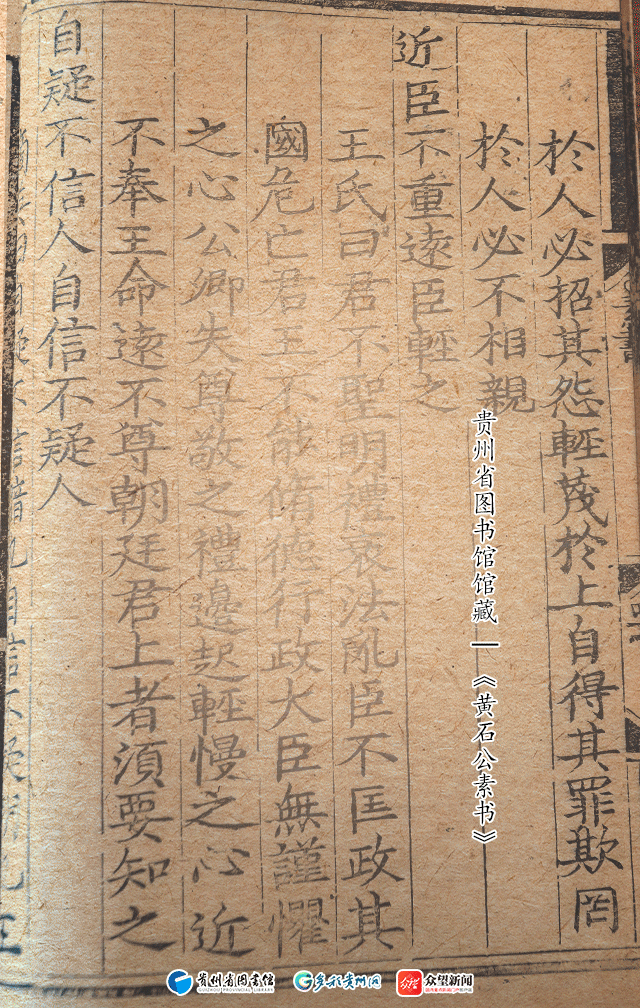 於人必招其怨輕蔑於上自得其罪欺罔
於人必不相親
近臣不重遠臣輕之
王氏曰君不聖明禮衰法亂臣不匡政其
國危亡君王不能脩德行政大臣無謹懼
之心公卿失尊敬之禮遂起輕慢之心近
不奉王命遠不尊朝廷君上者須要知之
自疑不信人自信不疑人
贵州省图书馆馆藏 |《黄石公素书》
贵州省图书馆
GUIZHOU PROVINCIAL LIBRARY
多彩贵州网
众望新闻